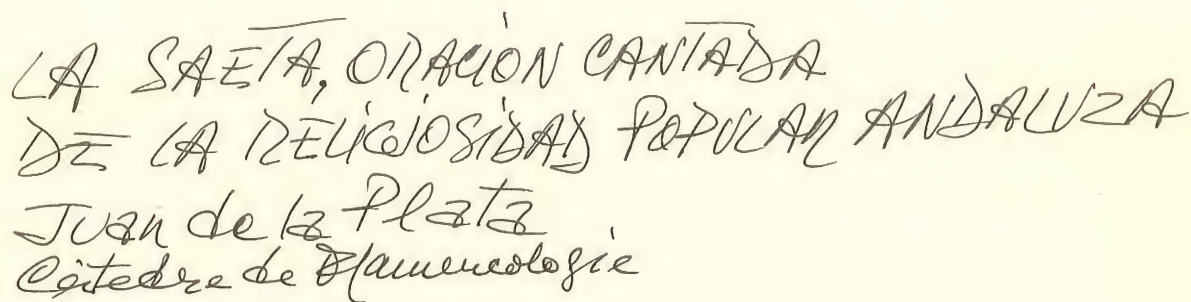 LA SAETA, ORACIÓN CANTADA
DE LA RELIGIOSIDAD POPULAR ANDALUZA
Juan de la Plata
Cátedra de Flamencología